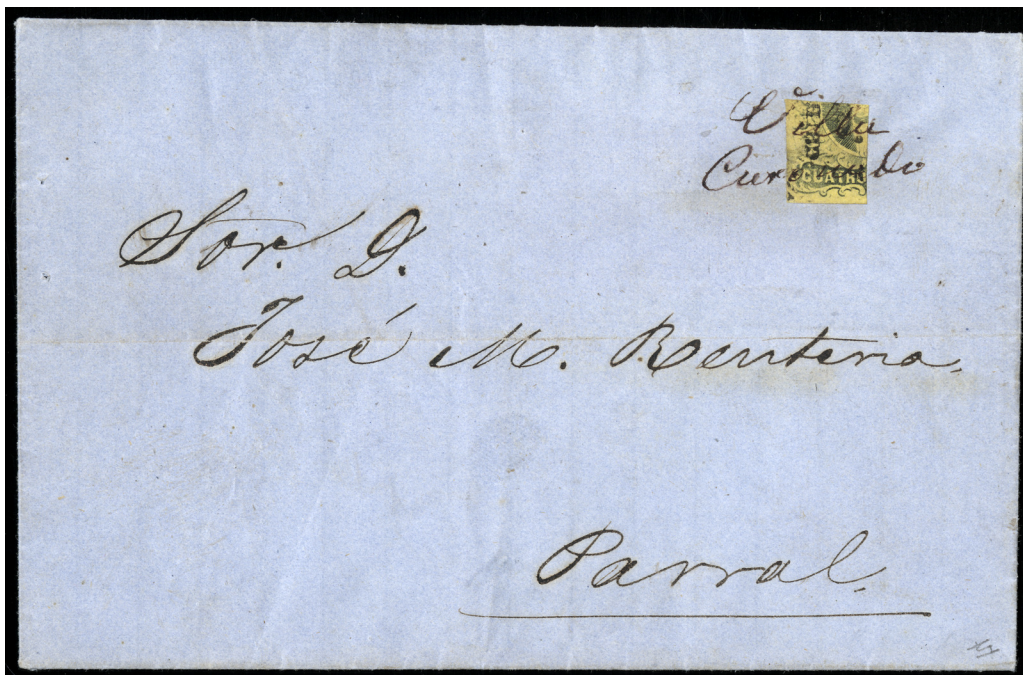 Villa
Coronado
CUATRO
Sor. D.
José M. Renteria.
Parral.